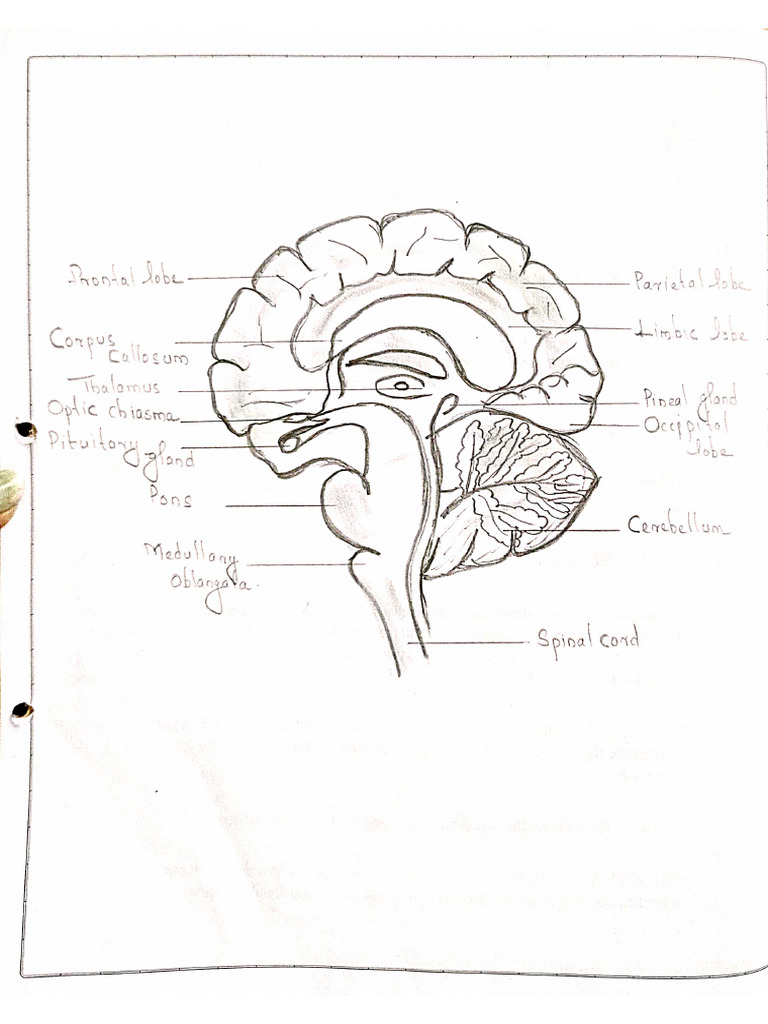 Frontal lobe
Parietal lobe
Corpus
Callosum
Limbic lobe
Thalamus
Optic chiasma
Pineal gland
Pituitary gland
Occipital
lobe
Pons
Cerebellum
Medullary
Oblangata.
Spinal cord